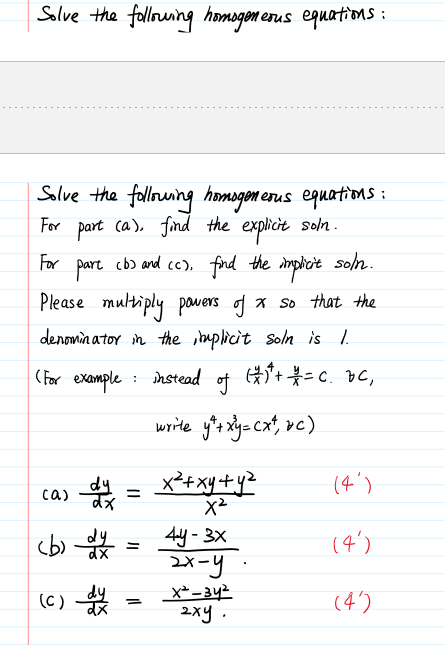 Solve the following homogeneous equations :
Solve the following homogeneous equations :
For part (a), find the explicit soln.
For part (b) and (c), find the implicit soln.
Please multiply powers of x so that the
denominator in the implicit soln is 1.
(For example : instead of (y/x)⁴ + y/x = C. ∀C,
write y⁴ + x³y = Cx⁴, ∀C)
(a) dy/dx = (x² + xy + y²)/x² (4')
(b) dy/dx = (4y - 3x)/(2x - y). (4')
(c) dy/dx = (x² - 3y²)/(2xy). (4')